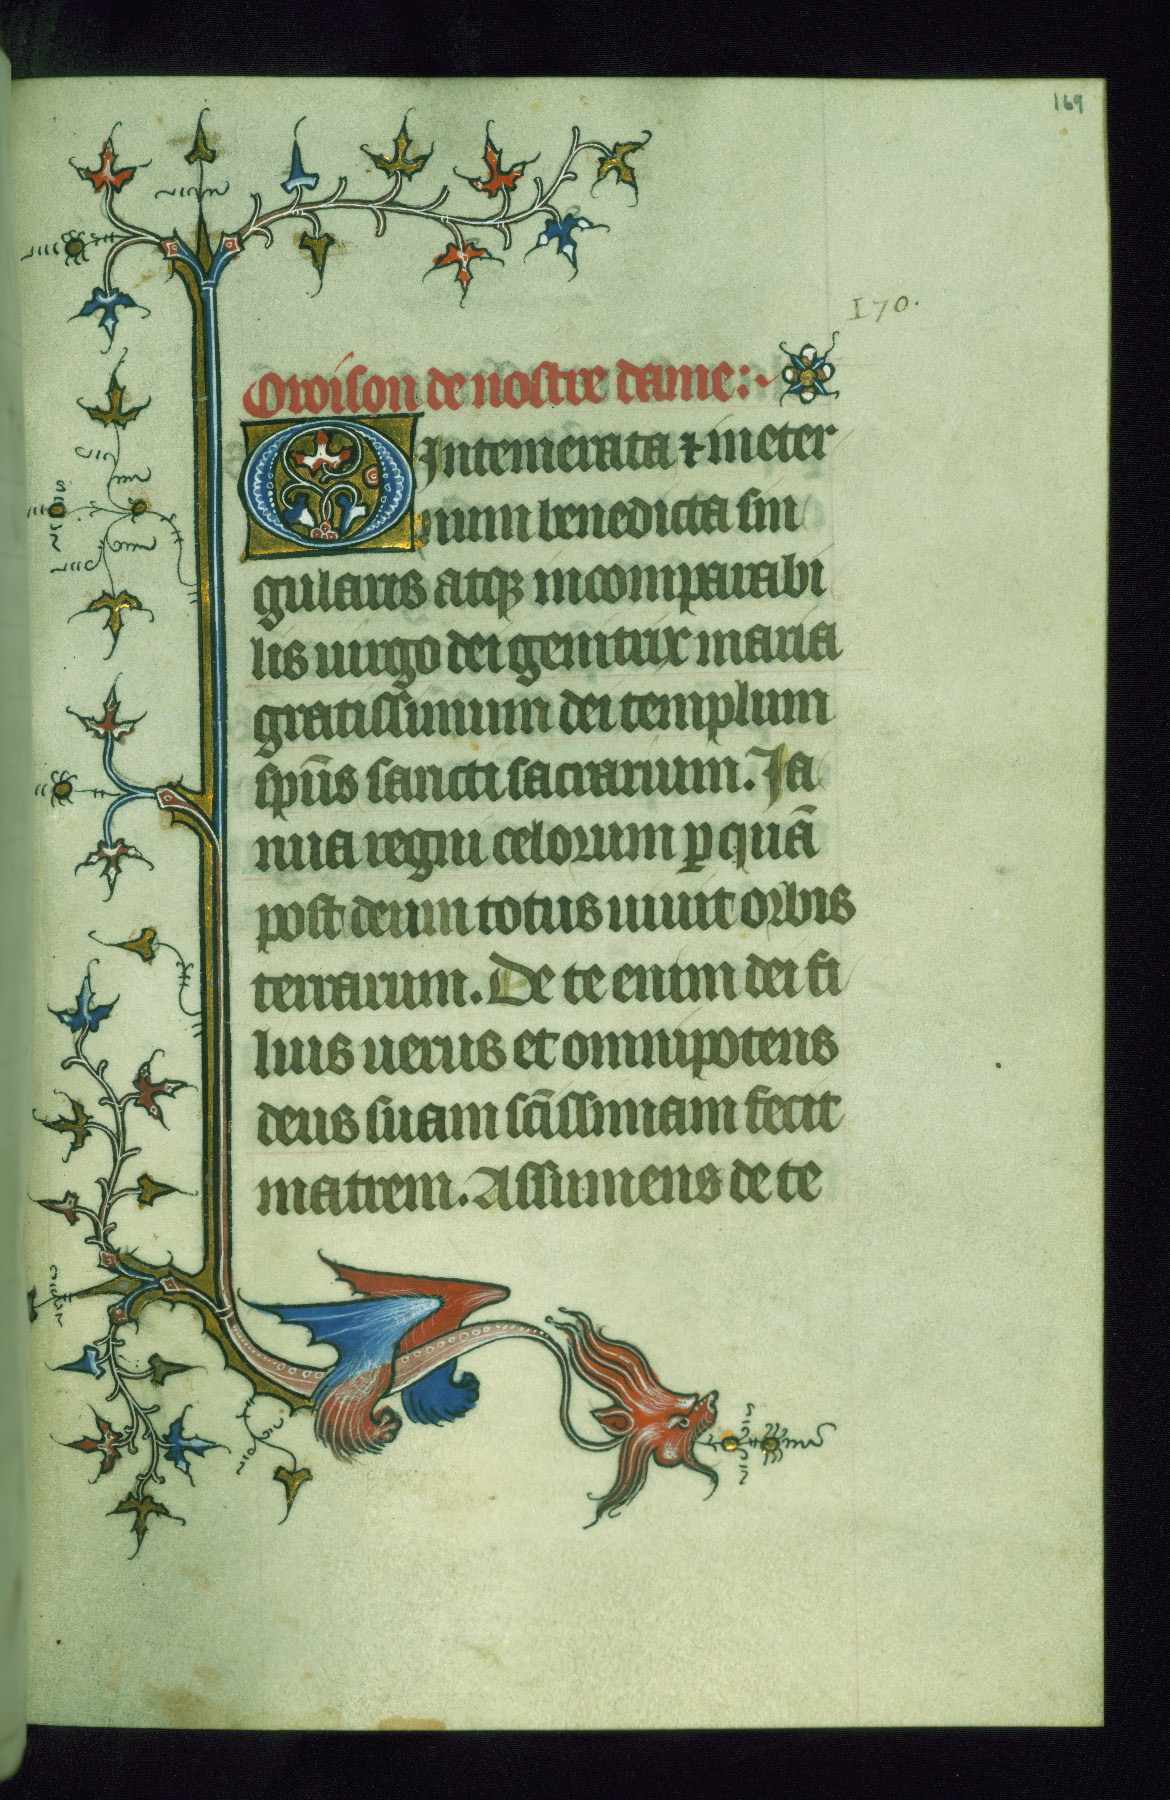 169
170.
Oroison de nostre dame:
O Intemerata ⁊ in eter
num benedicta sin
gularis atq3 incomparabi
lis uirgo dei genitrix maria
gratissimum dei templum
sp̄us sancti sacrarium. Ja
nua regni celorum ꝑ quā
post deum totus uiuit orbis
terrarum. De te enim dei fi
lius uerus et omnipotens
deus suam sc̄issimam fecit
matrem. Assumens de te